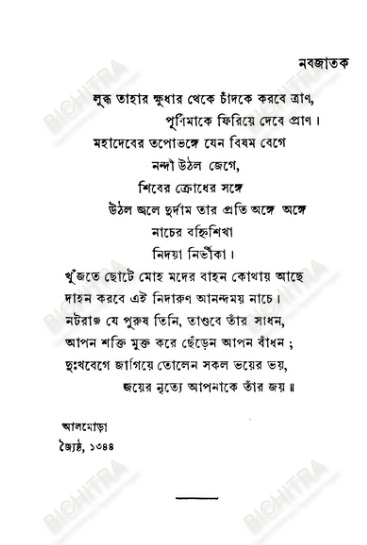 নবজাতক
লুব্ধ তাহার ক্ষুধার থেকে চাঁদকে করবে ত্রাণ,
পূর্ণিমাকে ফিরিয়ে দেবে প্রাণ।
মহাদেবের তপোভঙ্গে যেন বিষম বেগে
নন্দী উঠল জেগে,
শিবের ক্রোধের সঙ্গে
উঠল জ্বলে দুর্দাম তার প্রতি অঙ্গে অঙ্গে
নাচের বহ্নিশিখা
নিদয়া নির্ভীকা।
খুঁজতে ছোটে মোহ মদের বাহন কোথায় আছে
দাহন করবে এই নিদারুণ আনন্দময় নাচে।
নটরাজ যে পুরুষ তিনি, তাণ্ডবে তাঁর সাধন,
আপন শক্তি মুক্ত করে ছেঁড়েন আপন বাঁধন;
দুঃখবেগে জাগিয়ে তোলেন সকল ভয়ের ভয়,
জয়ের নৃত্যে আপনাকে তাঁর জয়॥
আলমোড়া
জ্যৈষ্ঠ, ১৩৪৪
BICHITRA
BICHITRA
BICHITRA
BICHITRA
BICHITRA
BICHITRA